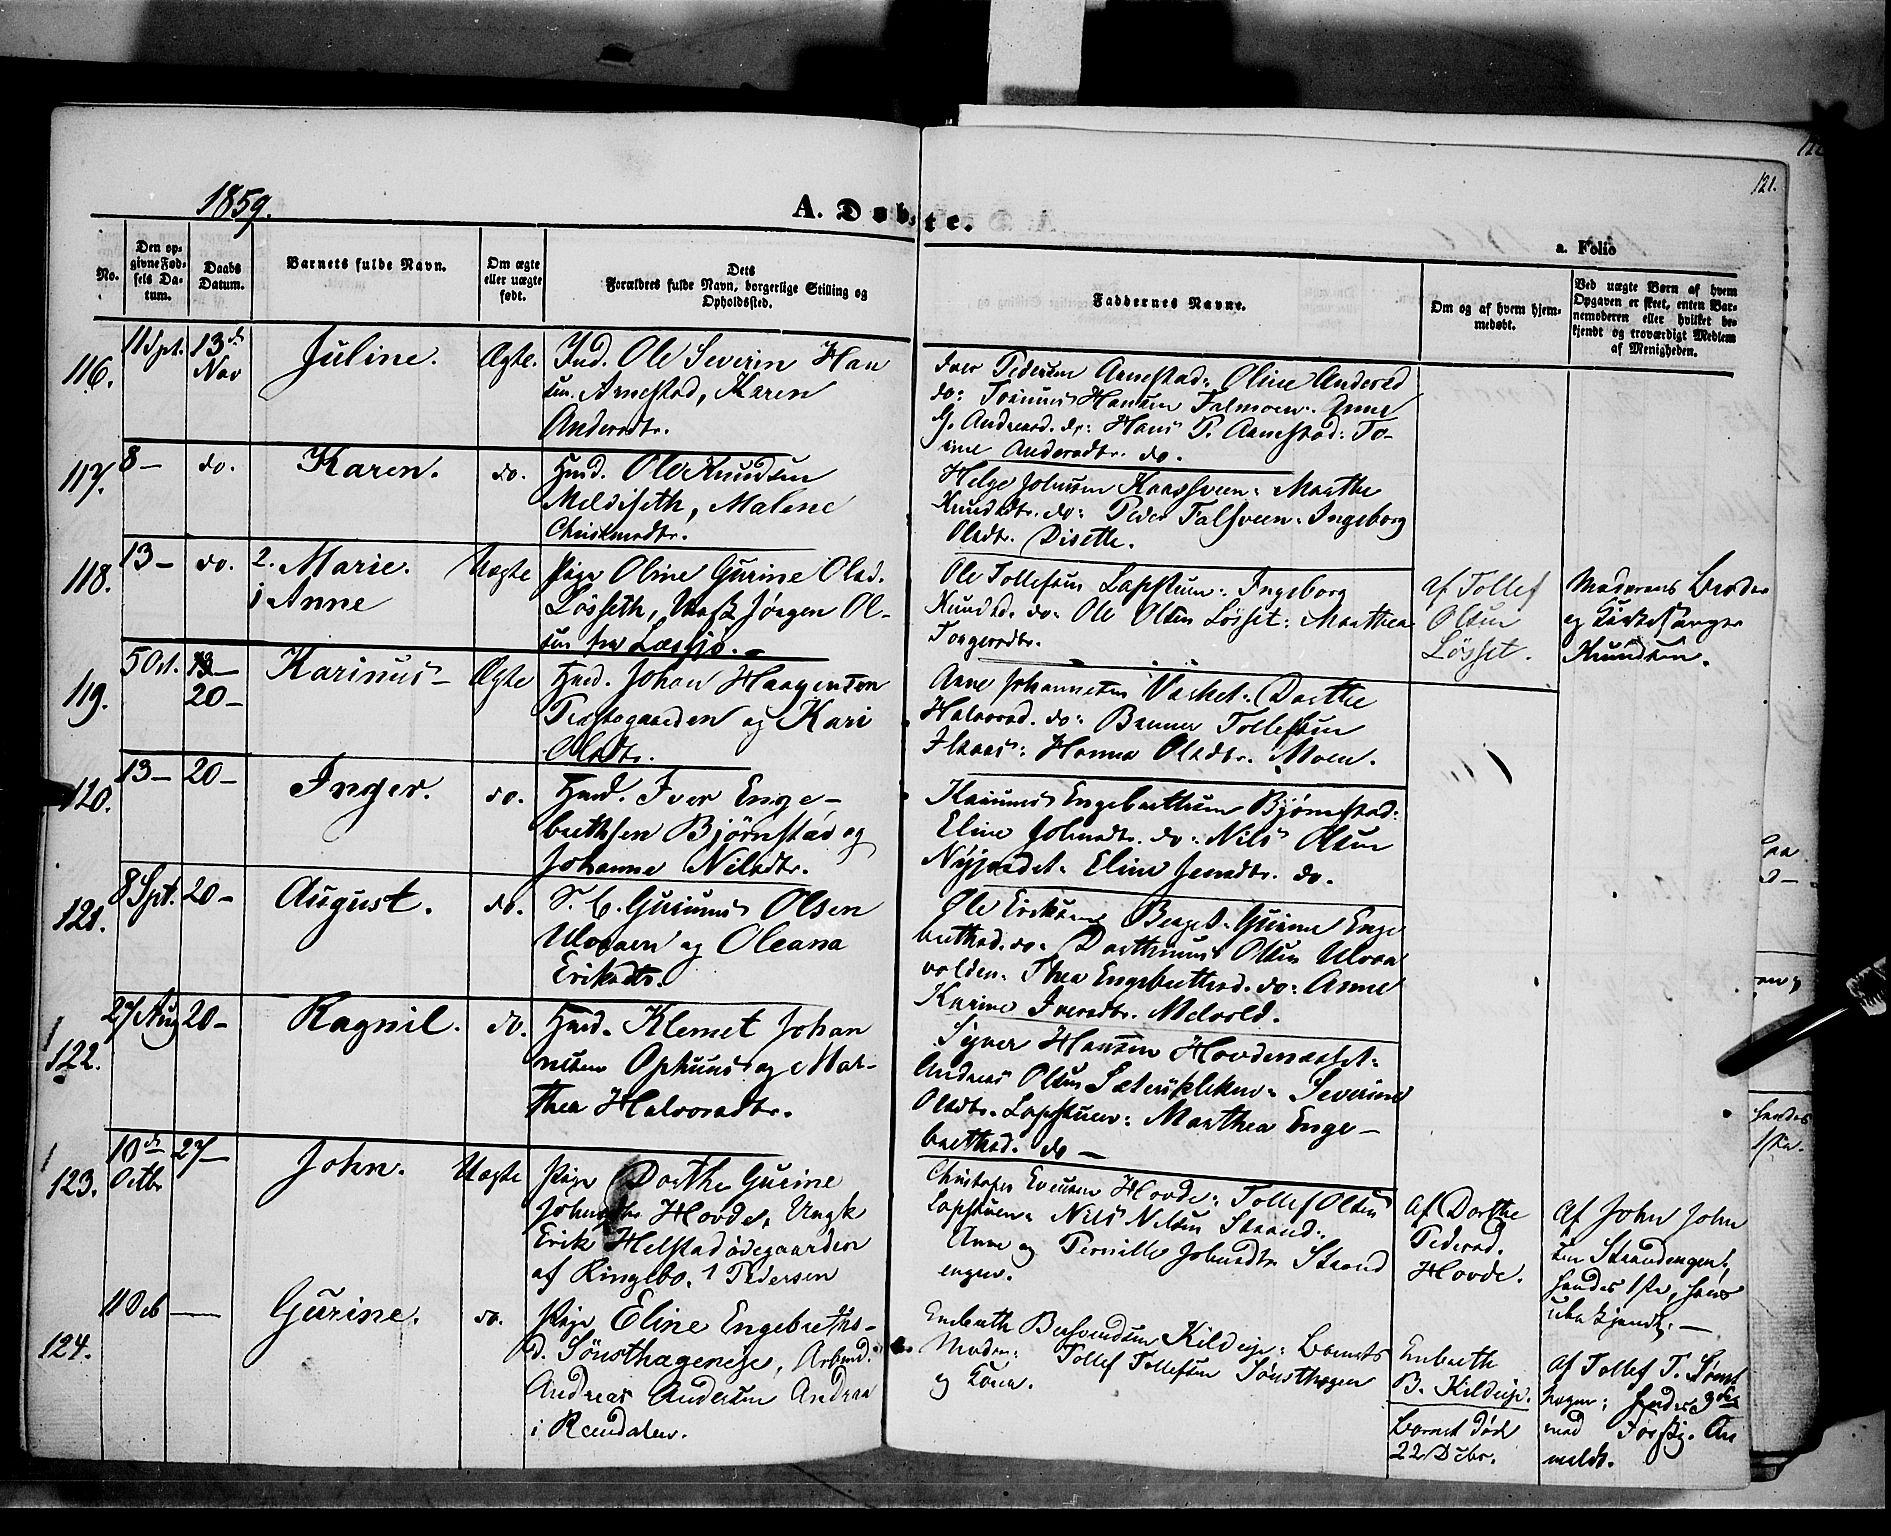 1859.
A. Døbte.
121.
a. Folio
No.
Den op-
givne Fød-
sels Da-
tum.
Daabs
Datum.
Barnets fulde Navn.
Om ægte
eller uægte
født.
Dets
Forældres fulde Navn, borgerlige Stilling og
Opholdssted.
Faddernes Navne.
Om og af hvem hjem-
medøbt.
Ved uægte Børn af hvem
Opgaven er skeet, enten Bar-
nemoderen eller hvilket be-
kjendt og troværdigt Medlem
af Menigheden.
116.
11 Spt.
13de
Nov
Juline.
Ægte.
Ind. Ole Severin Han
sen Arnestad, Karen
Andersdtr.
Iver Pedersen Arnestad: Oline Andersd
do: Hansen Anne
G. Andersd. do: Hans P. Arnestad: To-
rine Andersdtr. do.
117.
8 —
do.
Karen.
do.
Husd. Ole Knudsen
Meldiseth, Malene
Helge Johnsen Maathe
Knudsdtr. do: Peder Ingeborg
Olsdtr. Disethe.
118.
13 —
do.
2. Marie.
1 Anne
Uægte
Pige Oline Gurine Olsd.
Løsseth, Jørgen Ol-
sen fra
Ole Tollefsen Lapstuen: Ingeborg
Knudsd. do: Ole Olsen Løsset: Marthea
Torgersdtr.
af Tollef
Olsen
Løsset.
Moderens Broder
og Kirkesanger
Knudsen.
119.
5 Oct.
20 —
Karinus —
Ægte
Husd. Johan Haagensen
Præstegaarden og Kari
Olsdtr.
Arne Johannesen Dorthe
Halvorsd. do: Tollefsen
Hanna Olsdtr. Moen.
120.
13 —
20 —
Inger.
do.
Husd. Iver Enge-
brethsen Bjørnstad og
Johanne Nilsdtr.
Karinus Engebrethsen Bjørnstad:
Eline Johnsdtr. do: Nils Olsen
Nyjordet: Eline Jensdtr. do.
121.
8 Spt.
20 —
August.
do.
Gurinus Olsen
Ulvaaen og Oleana
Eriksdtr.
Ole Eriksen Berget: Gurine Enge
brethsd. do: Dorthinus Olsen Ulvaa
volden: Thea Engebrethsd. do: Anne
Karine Iversdtr. Melvold.
122.
27 Aug
20 —
Ragnil.
do.
Husd. Klemet Johan
nesen Ophuus og Mar-
thea Halvorsdtr.
Syver Hansen
Andreas Olsen Severine
Olsdtr. Lapstuen: Marthea Enge-
brethsd. do —
123.
10de
Octbr
27 —
John.
Uægte
Pige Dorthe Gurine
Johnsdtr Hovde, Ungk
Erik Helstadødegaarden
af Ringebo. 1 Pedersen
Christopher Evensen Hovde: Tollef Olsen
Lapstuen: Nils Nilsen Strand:
Anne og Pernille Johnsdtr Strand
engen.
Af Dorthe
Pedersd.
Hovde.
Af John John
sen Strandengen;
hendes 1ste, hans
ube kjendt. —
124.
11 Deb
—
Gurine.
do.
Pige Eline Engebreths-
d. Sønsthageneje, Arbmd.
Andreas Andersen Andraa
i Rendalen.
Embreth Kildeeje: Barnets
Moder: Tollef Tollefsen Sønsthagen
og Kone.
Embreth
B. Kildeeje.
Barnet død
22 Decbr.
Af Tollef T. Sønst
hagen; hendes 3die
med An
meldt.